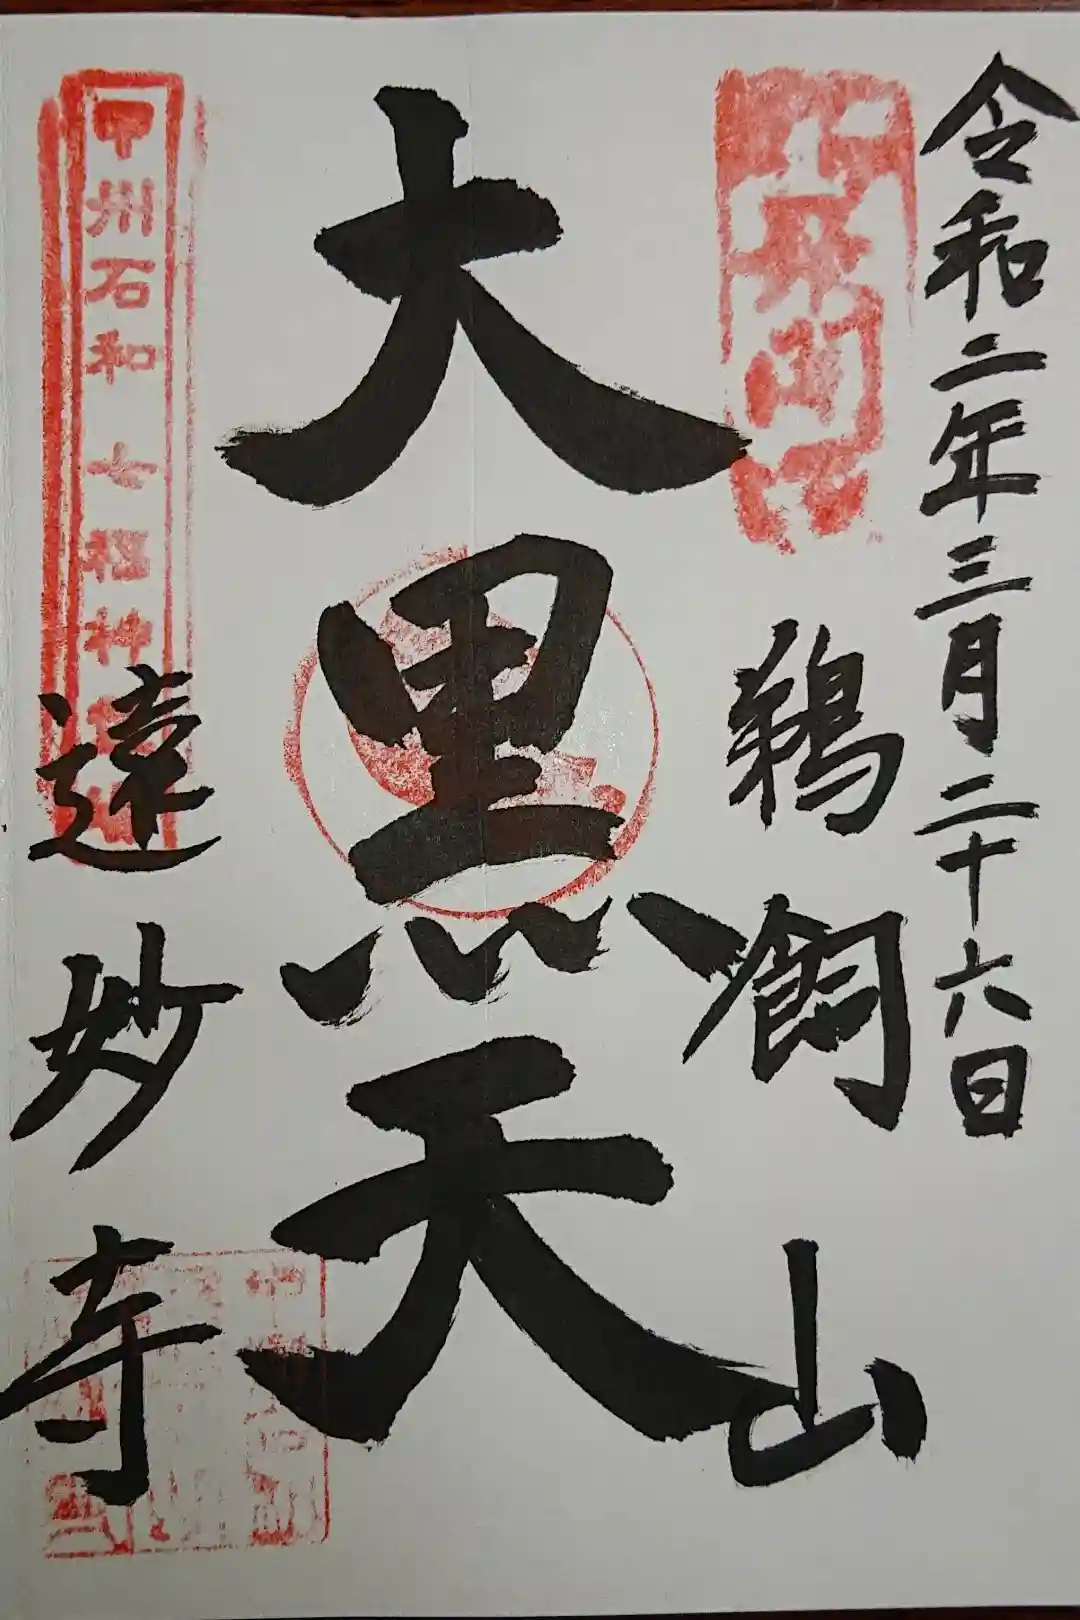 令和二年三月二十六日
鵜飼山
大黒天
甲州石和 七福神
遠妙寺